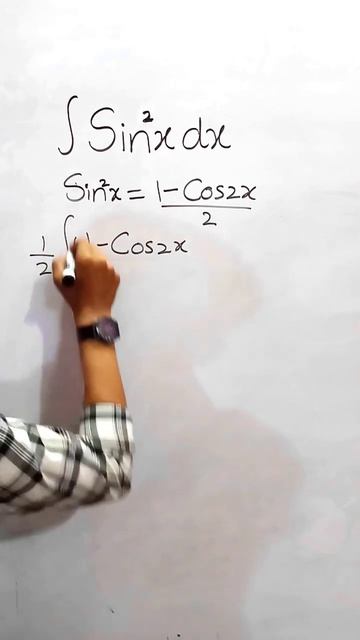 ∫ Sin²x dx
Sin²x = 1 - Cos2x / 2
1/2 ∫ 1 - Cos2x